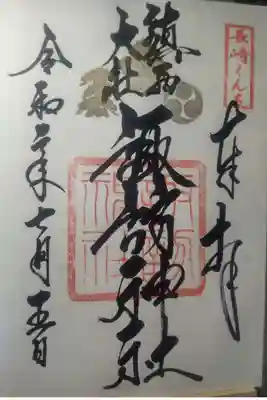 長崎くんち
奉拝
鎮西
大社
諏訪神社
令和 年 月五日